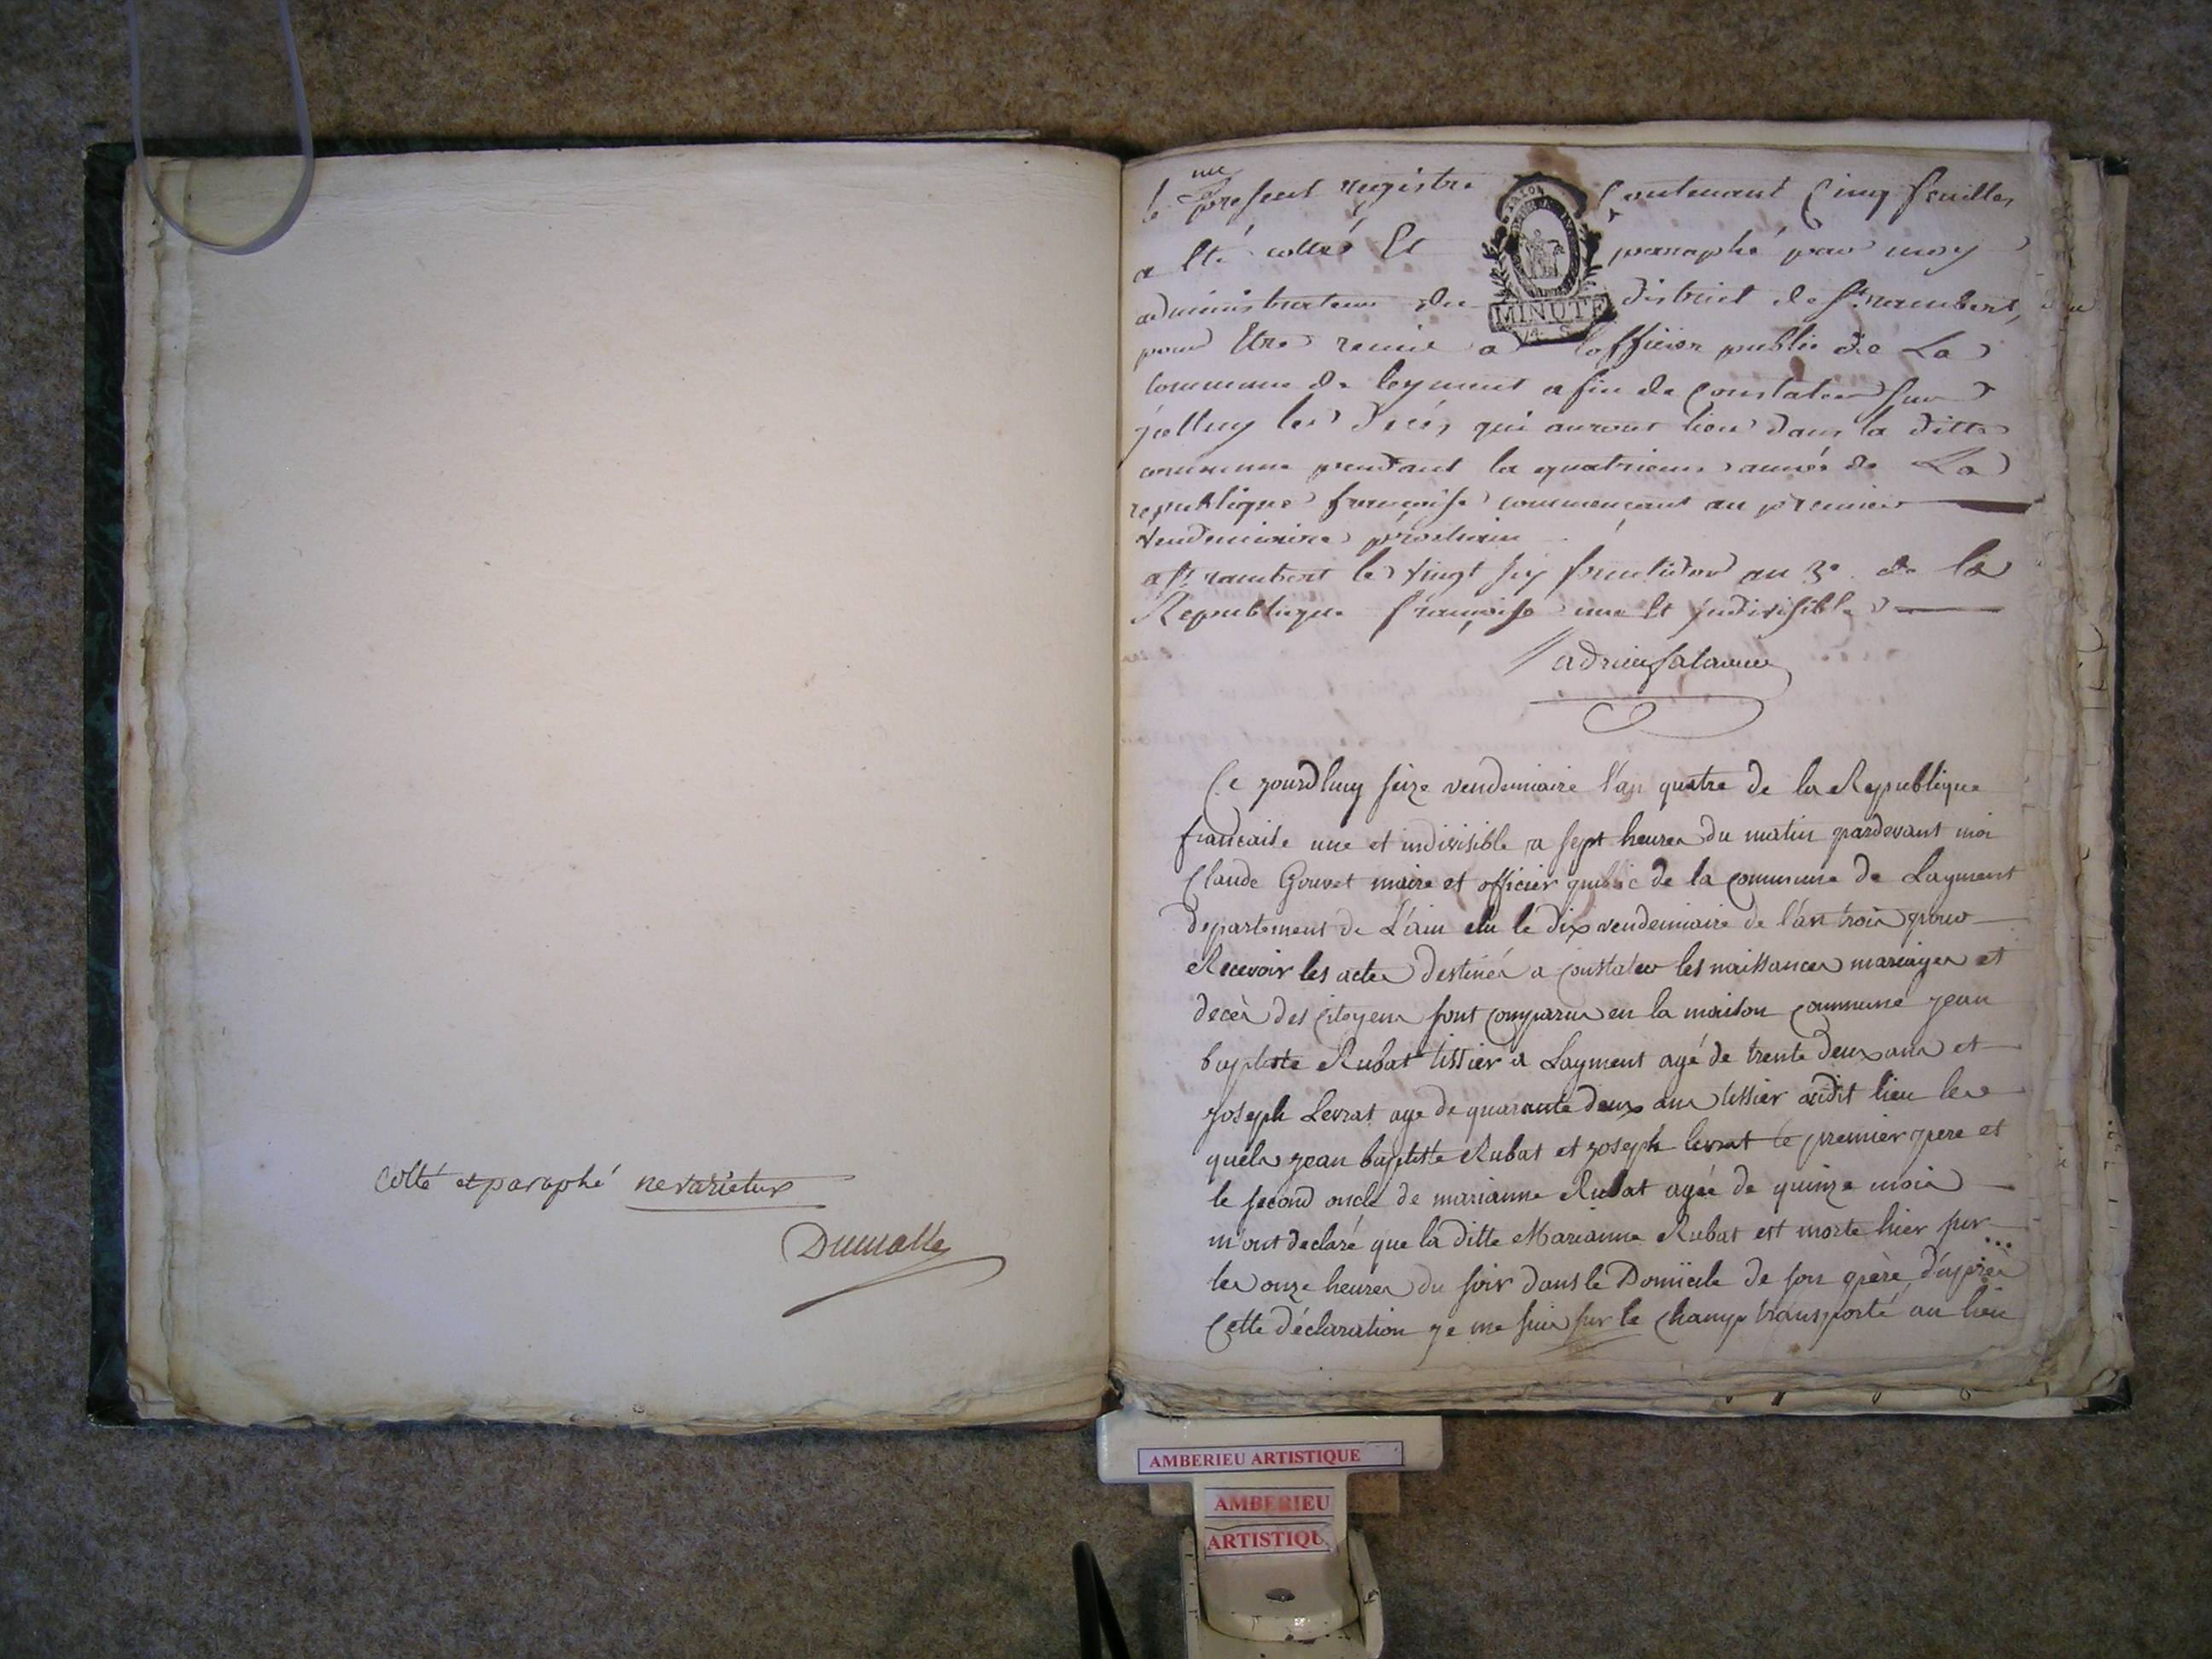 Cotté et paraphé ne varietur
le present registre contenant Cinq feuilles
a Eté cotté Et paraphé par moy
administrateur du district de St rambert,
MINUTE
pour Etre remis a lofficier public de La
Commune de leyment afin de Constater sur
jcelluy les deces qui auront lieu dans la ditte
commune pendant la quatrieme année de La
republique françoise commençant au premier
vendemiaire prochain
a St rambert le vingt six fructidor an 3e de la
Republique françoise une Et jndivisible
adrien
Ce jourdhuy seize vendemiaire l'an quatre de la Republique
francaise une et indivisible a sept heures du matin pardevant moi
Claude Gouvet maire et officier public de la commune de Layment
departement de L'ain elu le dix vendemiaire de l'an trois pour
Recevoir les actes destinés a constater les naissances mariages et
decès des citoyens sont comparus en la maison commune jean
baptiste Rubat tissier a Layment agé de trente deux ans et
joseph Levrat age de quarante deux ans tissier audit lieu les
quels jean baptiste Rubat et joseph levrat le premier pere et
le second oncle de marianne Rubat agée de quinze mois
m'ont declaré que la ditte Marianne Rubat est morte hier sur
les onze heures du soir dans le Domicile de son père, d'après
Cette déclaration je me suis sur le champ transporté au lieu
AMBERIEU ARTISTIQUE
AMBERIEU
ARTISTIQU